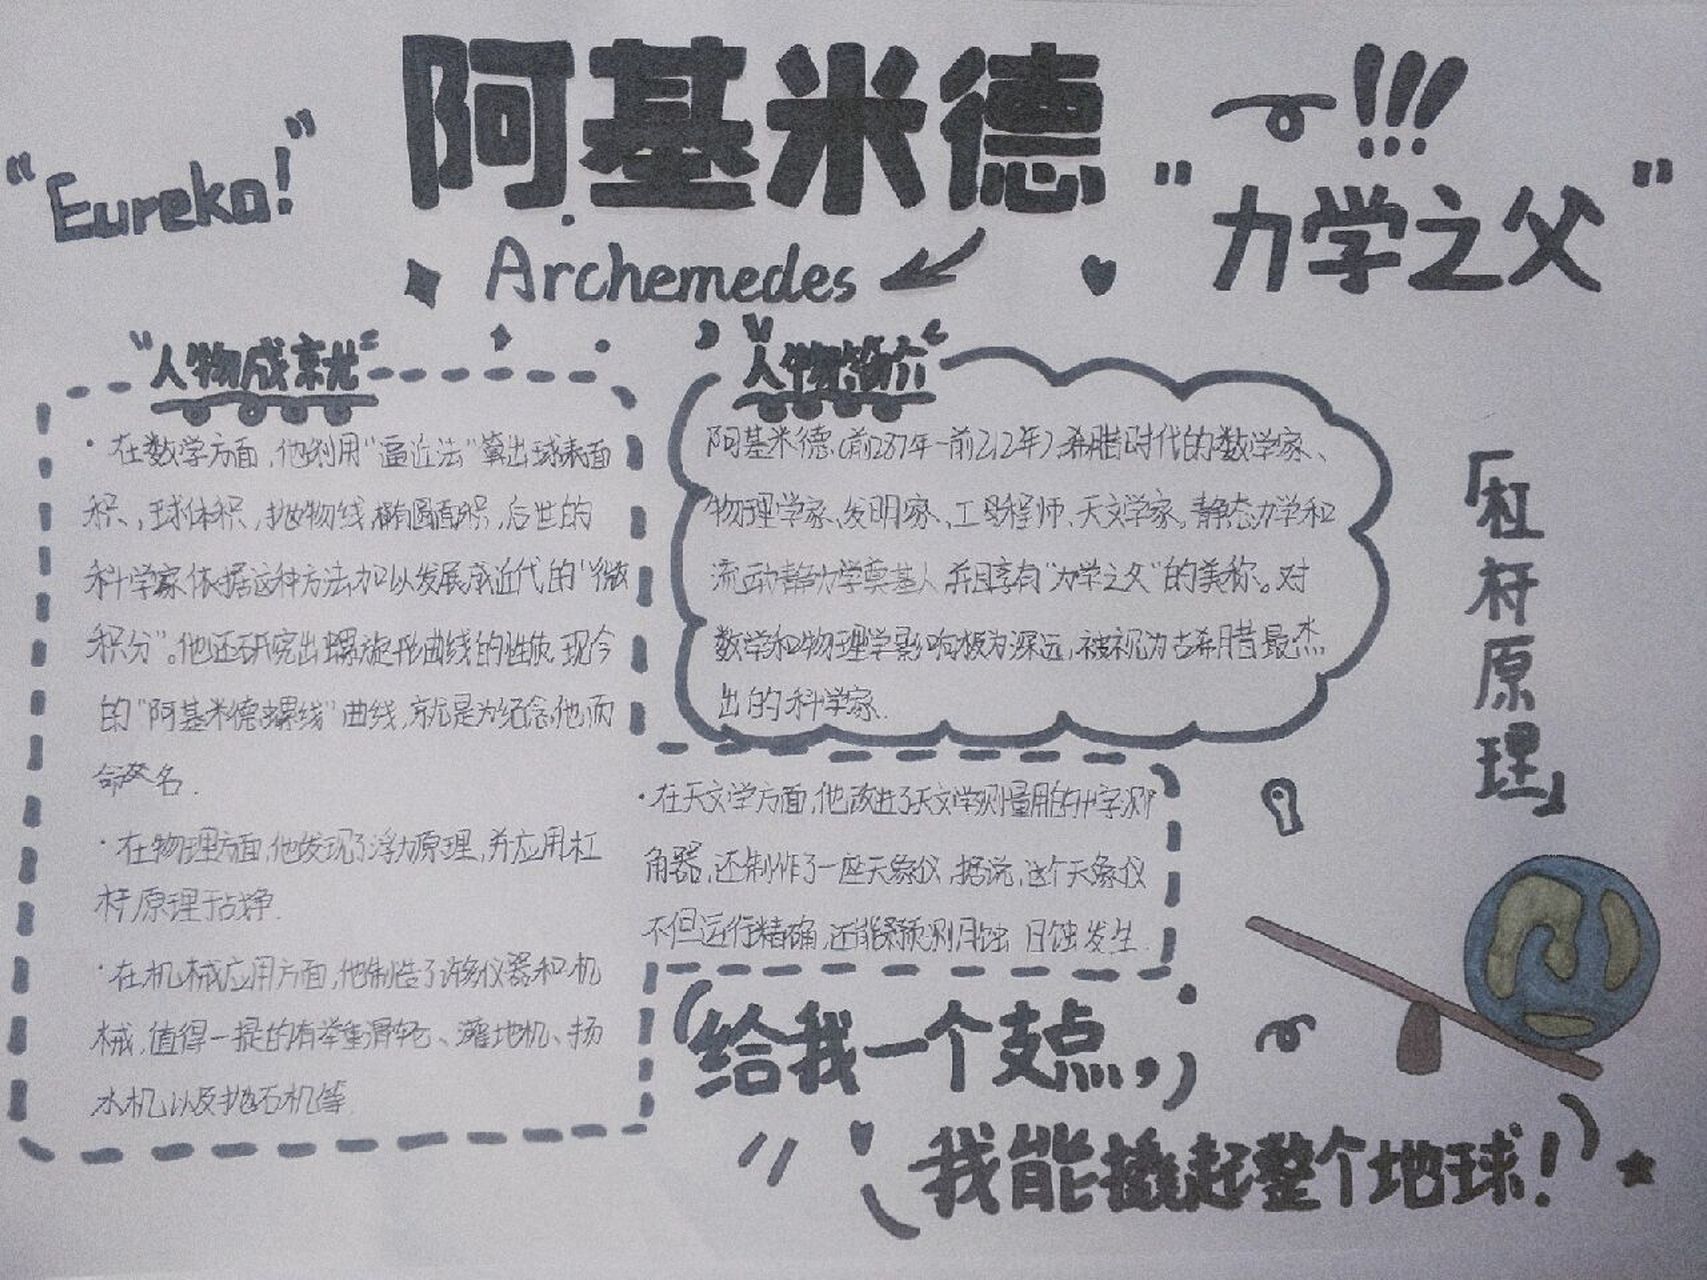 阿基米德
!!!
"Eureka!"
"力学之父"
Archemedes
"人物成就"
·在数学方面,他利用"逼近法"算出球表面
积、球体积,抛物线,椭圆面积,后世的
科学家依据这种方法加以发展成近代的"微
积分"。他还研究出螺旋形曲线的性质,现今
的"阿基米德螺线"曲线,就是为纪念他而
命名.
·在物理方面,他发现了浮力原理,并应用杠
杆原理于战争.
·在机械应用方面,他制造了许多仪器和机
械,值得一提的有举重滑轮、灌地机、扬
水机以及抛石机等.
"人物简介"
阿基米德(前287年-前212年)希腊时代的数学家、
物理学家、发明家、工程师、天文学家。静态力学和
流动静力学奠基人,并且享有"力学之父"的美称。对
数学和物理学影响极为深远,被视为古希腊最杰
出的科学家.
·在天文学方面,他改进了天文学测量用的十字测
角器,还制作了一座天象仪,据说,这个天象仪
不但运行精确,还能预测月蚀 日蚀发生.
「杠
杆
原
理」
(给我一个支点,)
(我能撬起整个地球!)